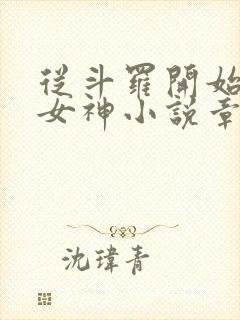 從斗羅開始
女神小說章
沈瑋青